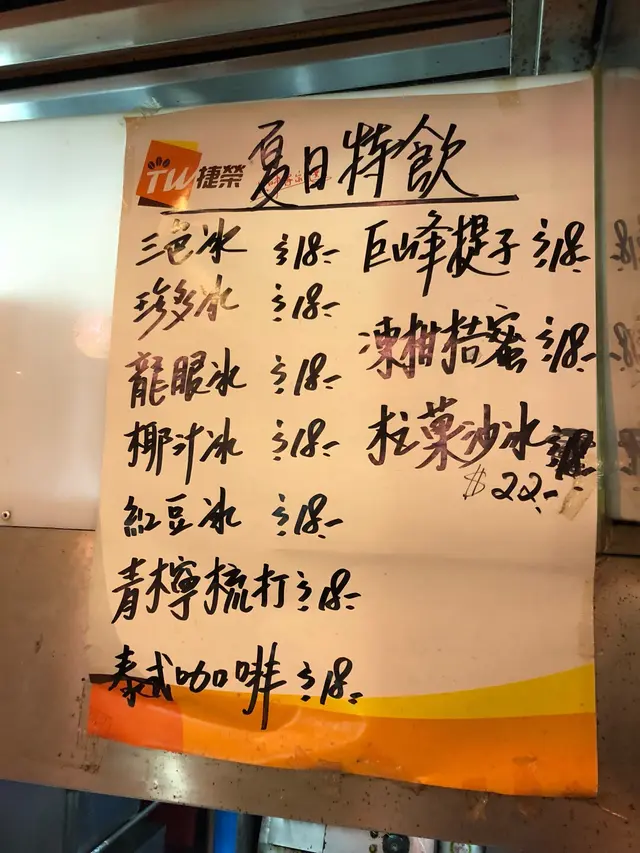 TW 捷榮
夏日特飲
三色冰 $18.-
珍多冰 $18.-
龍眼冰 $18.-
椰汁冰 $18.-
紅豆冰 $18.-
青檸梳打 $18.-
泰式咖啡 $18.-
巨峰提子 $18.-
凍柑桔蜜 $18.-
杧菓沙冰
$22.-